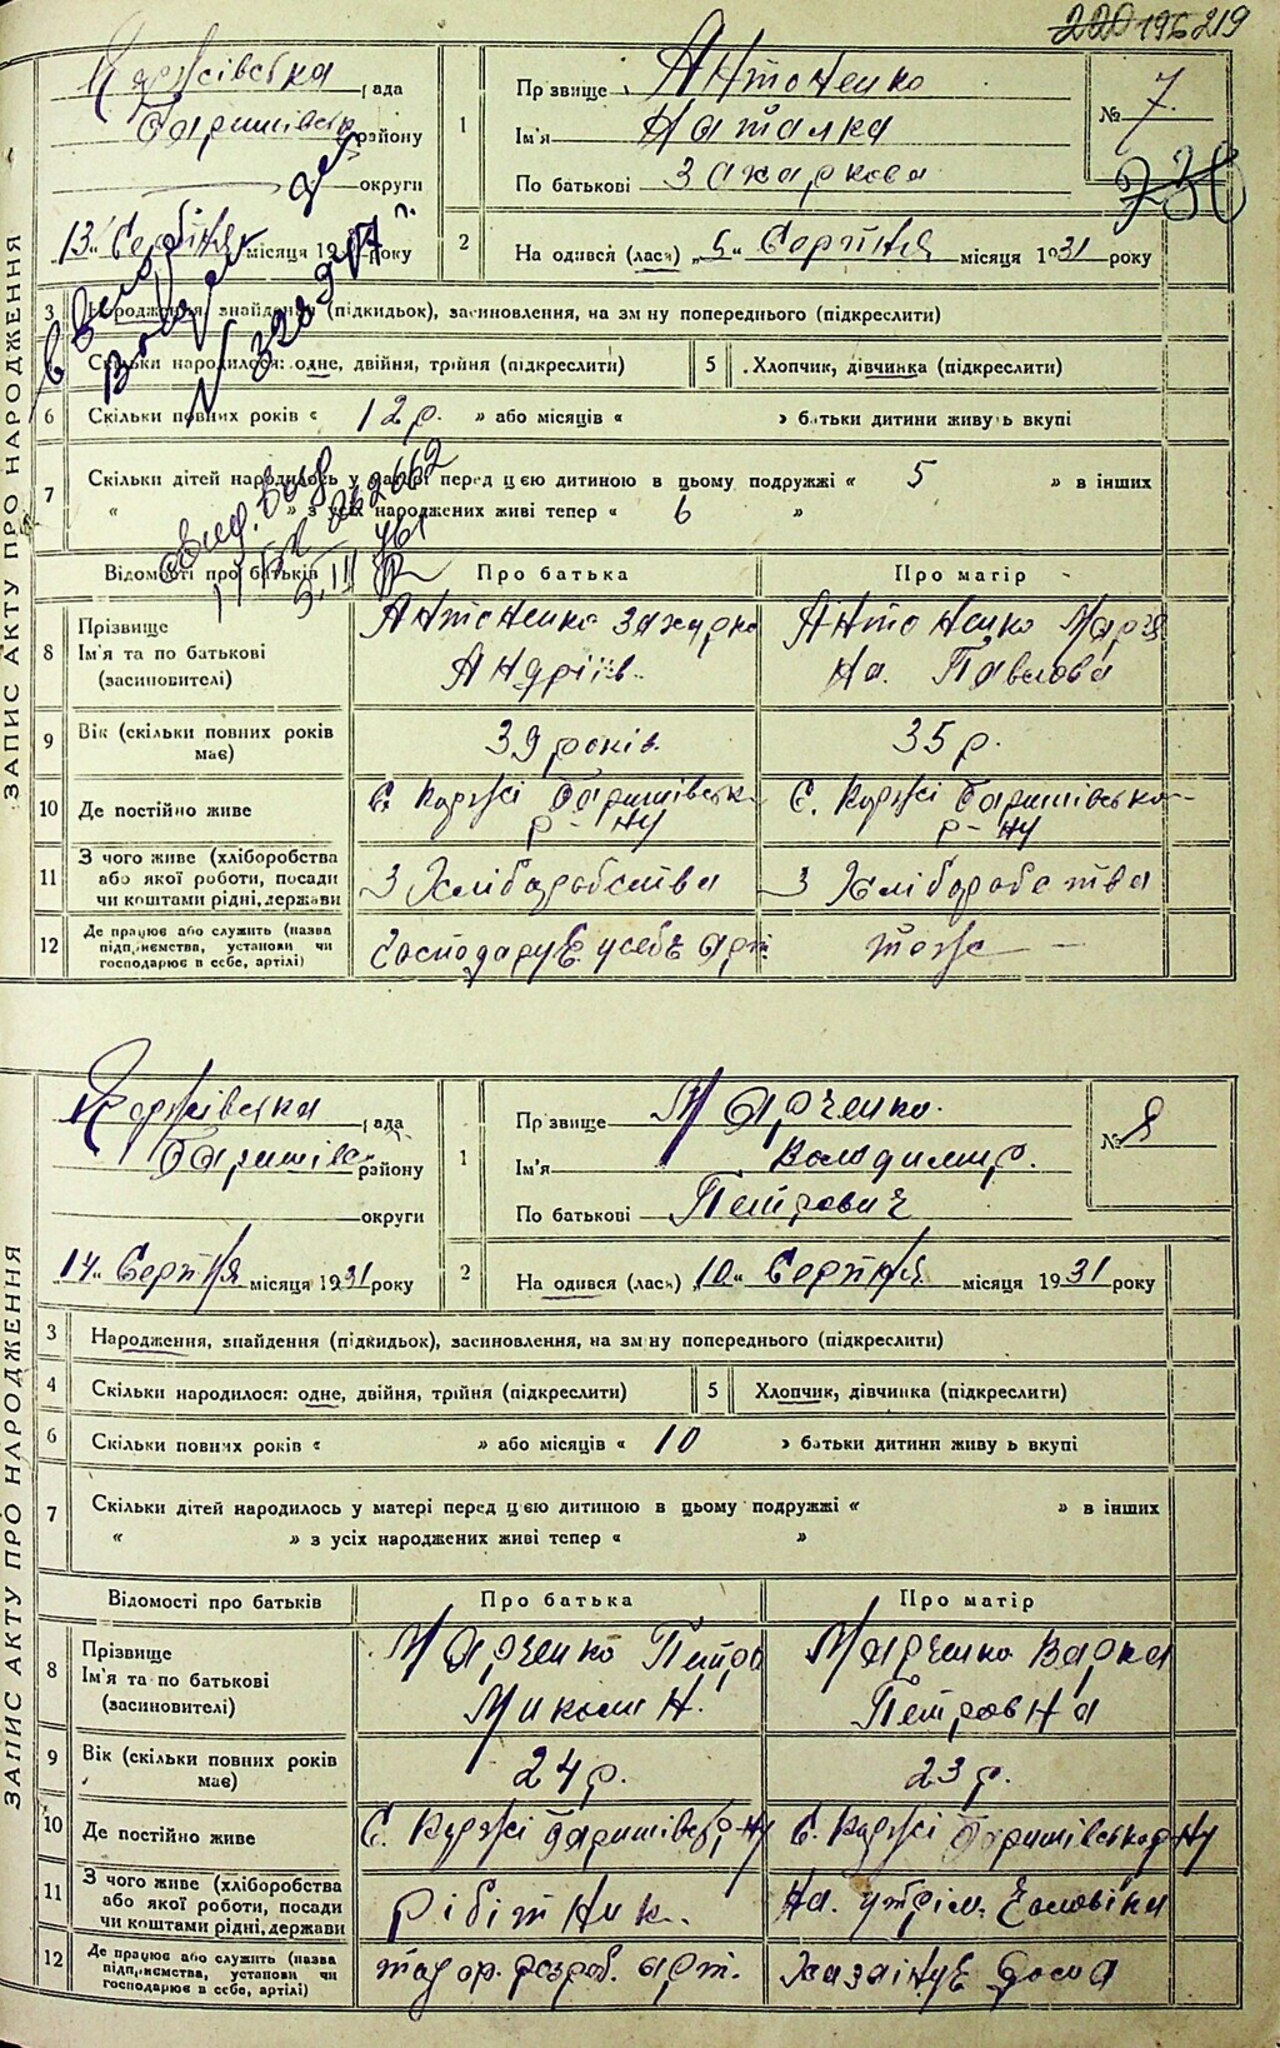 220 196 219
ЗАПИС АКТУ ПРО НАРОДЖЕННЯ
Коржівська рада
Баришівськ району
округи
„13“ Серпня місяця 19 року
1 Прізвище Антоненко
Ім'я Наталка
По батькові Захаркова
№ 7.
2 Народився (лася) „5“ Серпня місяця 1931 року
3 Народження, знайдення (підкидьок), засиновлення, на зміну попереднього (підкреслити)
Скільки народилося: одне, двійня, трійня (підкреслити)
5 Хлопчик, дівчинка (підкреслити)
6 Скільки повних років « 12 р. » або місяців « » батьки дитини живуть вкупі
7 Скільки дітей народилось у матері перед цією дитиною в цьому подружжі « 5 » в інших
« » з усіх народжених живі тепер « 6 »
Відомості про батьків Про батька Про матір
8 Прізвище
Ім'я та по батькові
(засиновителі)
Антоненко Захарко
Андріїв.
Антоненко Мар'я
на. Павлова
9 Вік (скільки повних років
має)
39 років.
35 р.
10 Де постійно живе
С. Коржі Баришівськ
р-ну
С. Коржі Баришівсько-
р-ну
11 З чого живе (хліборобства
або якої роботи, посади
чи коштами рідні, держави
З Хліборобства
З Хлібороботва
12 Де працює або служить (назва
підприємства, установи чи
господарює в себе, артілі)
Господарує усебе арт.
тоже
ЗАПИС АКТУ ПРО НАРОДЖЕННЯ
Коржівська рада
Баришівс району
округи
„14“ Серпня місяця 1931 року
1 Прізвище Марченко.
Ім'я Володимир.
По батькові Петрович
№ 8
2 Народився (лася) „10“ Серпня місяця 1931 року
3 Народження, знайдення (підкидьок), засиновлення, на зміну попереднього (підкреслити)
4 Скільки народилося: одне, двійня, трійня (підкреслити)
5 Хлопчик, дівчинка (підкреслити)
6 Скільки повних років « » або місяців « 10 » батьки дитини живуть вкупі
7 Скільки дітей народилось у матері перед цією дитиною в цьому подружжі « » в інших
« » з усіх народжених живі тепер « »
Відомості про батьків Про батька Про матір
8 Прізвище
Ім'я та по батькові
(засиновителі)
Марченко Петро
Микол Н.
Марченко Варка
Петровна
9 Вік (скільки повних років
має)
24 р.
23 р.
10 Де постійно живе
С. Коржі Баришівс р-ну
С. Коржі Баришівсько р-ну
11 З чого живе (хліборобства
або якої роботи, посади
чи коштами рідні, держави
рібітник.
На. утрім. Чоловіка
12 Де працює або служить (назва
підприємства, установи чи
господарює в себе, артілі)
розроб. арт.
Хазаінує дома